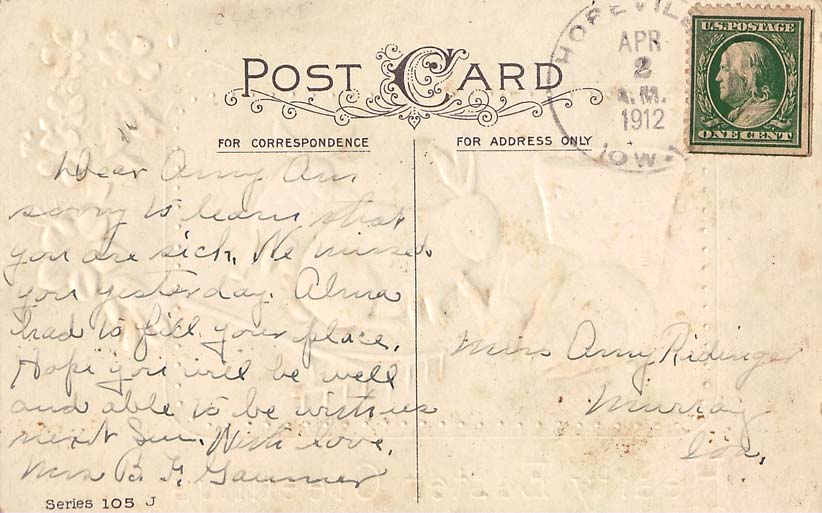 POST CARD
FOR CORRESPONDENCE
FOR ADDRESS ONLY
HOPEVILLE
APR
2
A.M.
1912
IOWA
U.S. POSTAGE
ONE CENT
Dear Amy Am
sorry to learn that
you are sick. We missed
you yesterday. Alma
had to fill your place.
Hope you will be well
and able to be with us
next Sun. With love,
Mrs B. F. Gaumer
Miss Amy Ridinger
Murray
Ioa.
Series 105 J
Hearty Easter Greeting